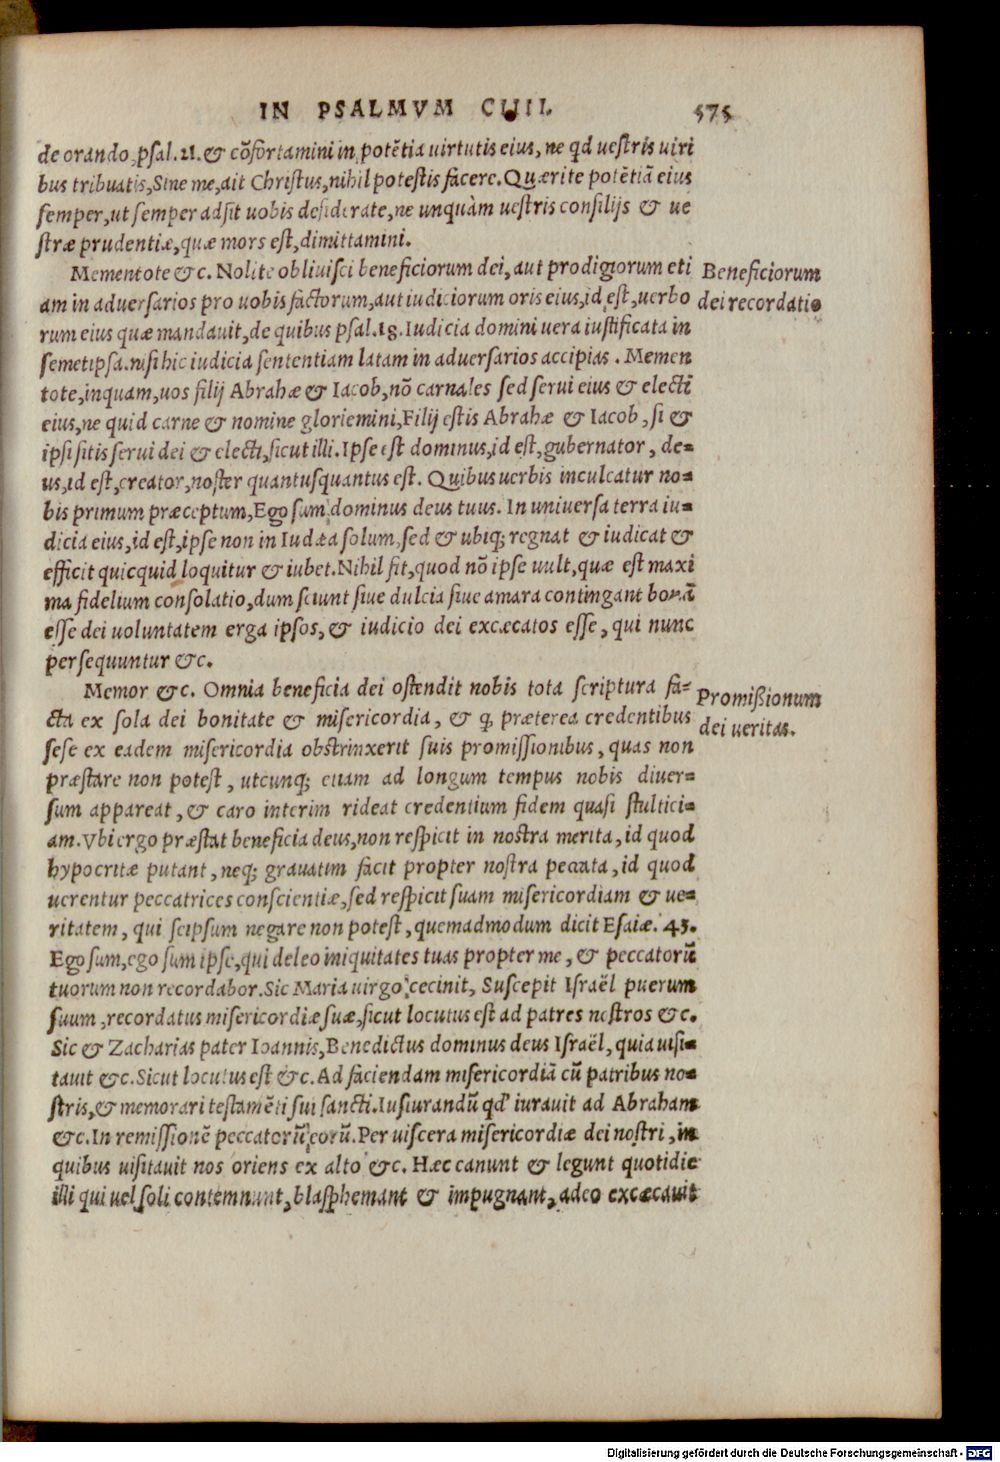 IN PSALMVM CIIII. 575
de orando, psal. 21. & cōfortamini in potētia uirtutis eius, ne qd uestris uiri
bus tribuatis, Sine me, ait Christus, nihil potestis facere. Quærite potētiā eius
semper, ut semper adsit uobis desiderate, ne unquàm uestris consilijs & ue
stræ prudentiæ, quæ mors est, dimittamini.
Mementote &c. Nolite obliuisci beneficiorum dei, aut prodigiorum eti
Beneficiorum
am in aduersarios pro uobis factorum, aut iudiciorum oris eius, id est, uerbo
dei recordatio
rum eius quæ mandauit, de quibus psal. 18. Iudicia domini uera iustificata in
semetipsa. nisi hic iudicia sententiam latam in aduersarios accipias. Memen
tote, inquam, uos filij Abrahæ & Iacob, nō carnales sed serui eius & electi
eius, ne quid carne & nomine gloriemini, Filij estis Abrahæ & Iacob, si &
ipsi sitis serui dei & electi, sicut illi. Ipse est dominus, id est, gubernator, de=
us, id est, creator, noster quantusquantus est. Quibus uerbis inculcatur no=
bis primum præceptum, Ego sum dominus deus tuus. In uniuersa terra iu=
dicia eius, id est, ipse non in Iudæa solum, sed & ubiq; regnat & iudicat &
efficit quicquid loquitur & iubet. Nihil fit, quod nō ipse uult, quæ est maxi
ma fidelium consolatio, dum sciunt siue dulcia siue amara contingant bonā
esse dei uoluntatem erga ipsos, & iudicio dei excæcatos esse, qui nunc
persequuntur &c.
Memor &c. Omnia beneficia dei ostendit nobis tota scriptura fa=
Promißionum
cta ex sola dei bonitate & misericordia, & q præterea credentibus
dei ueritas.
sese ex eadem misericordia obstrinxerit suis promissionibus, quas non
præstare non potest, utcunq; etiam ad longum tempus nobis diuer=
sum appareat, & caro interim rideat credentium fidem quasi stultici=
am. Vbi ergo præstat beneficia deus, non respicit in nostra merita, id quod
hypocritæ putant, neq; grauatim facit propter nostra peccata, id quod
uerentur peccatrices conscientiæ, sed respicit suam misericordiam & ue=
ritatem, qui seipsum negare non potest, quemadmodum dicit Esaiæ. 43.
Ego sum, ego sum ipse, qui deleo iniquitates tuas propter me, & peccatorū
tuorum non recordabor. Sic Maria uirgo cecinit, Suscepit Israël puerum
suum, recordatus misericordiæ suæ, sicut locutus est ad patres nostros &c.
Sic & Zacharias pater Ioannis, Benedictus dominus deus Israël, quia uisi=
tauit &c. Sicut locutus est &c. Ad faciendam misericordiā cū patribus no=
stris, & memorari testamēti sui sancti. Iusiurandū qd' iurauit ad Abraham
&c. In remissionē peccatorū eorū. Per uiscera misericordiæ dei nostri, in
quibus uisitauit nos oriens ex alto &c. Hæc canunt & legunt quotidie
illi qui uel soli contemnunt, blasphemant & impugnant, adeo excæcauit
Digitalisierung gefördert durch die Deutsche Forschungsgemeinschaft - DFG